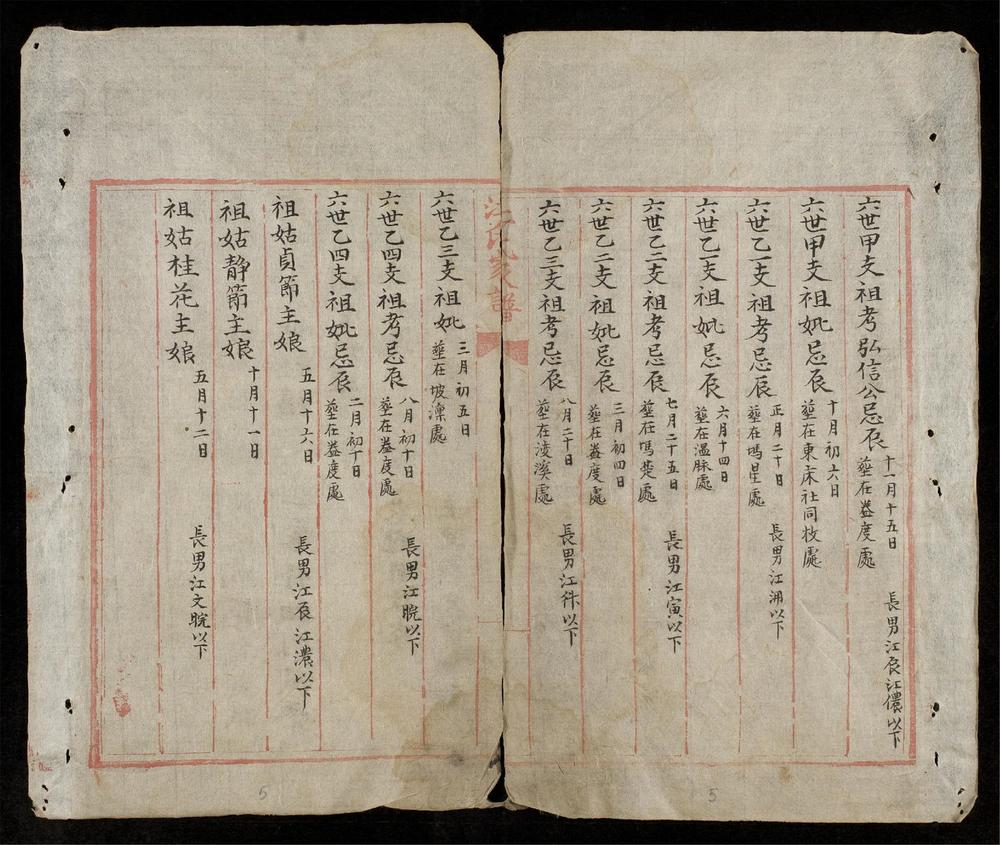 六世甲支祖考弘信公忌辰
十一月十五日
塟在益度處
長男江辰江儂以下
六世甲支祖妣忌辰
十月初六日
塟在東床社同牧處
六世乙一支祖考忌辰
正月二十日
塟在塢星處
長男江湃以下
六世乙一支祖妣忌辰
六月十四日
塟在温脉處
六世乙二支祖考忌辰
七月二十五日
塟在塢楚處
長男江寅以下
六世乙二支祖妣忌辰
三月初四日
塟在益度處
六世乙三支祖考忌辰
八月二十日
塟在淩溪處
長男江㤕以下
江氏家譜
六世乙三支祖妣
三月初五日
塟在坡漂處
六世乙四支祖考忌辰
八月初十日
塟在益度處
長男江晥以下
六世乙四支祖妣忌辰
二月初十日
塟在益度處
祖姑貞節主娘
五月十六日
長男江辰江濃以下
祖姑静節主娘
十月十一日
祖姑桂花主娘
五月十二日
長男江文晥以下
5
5